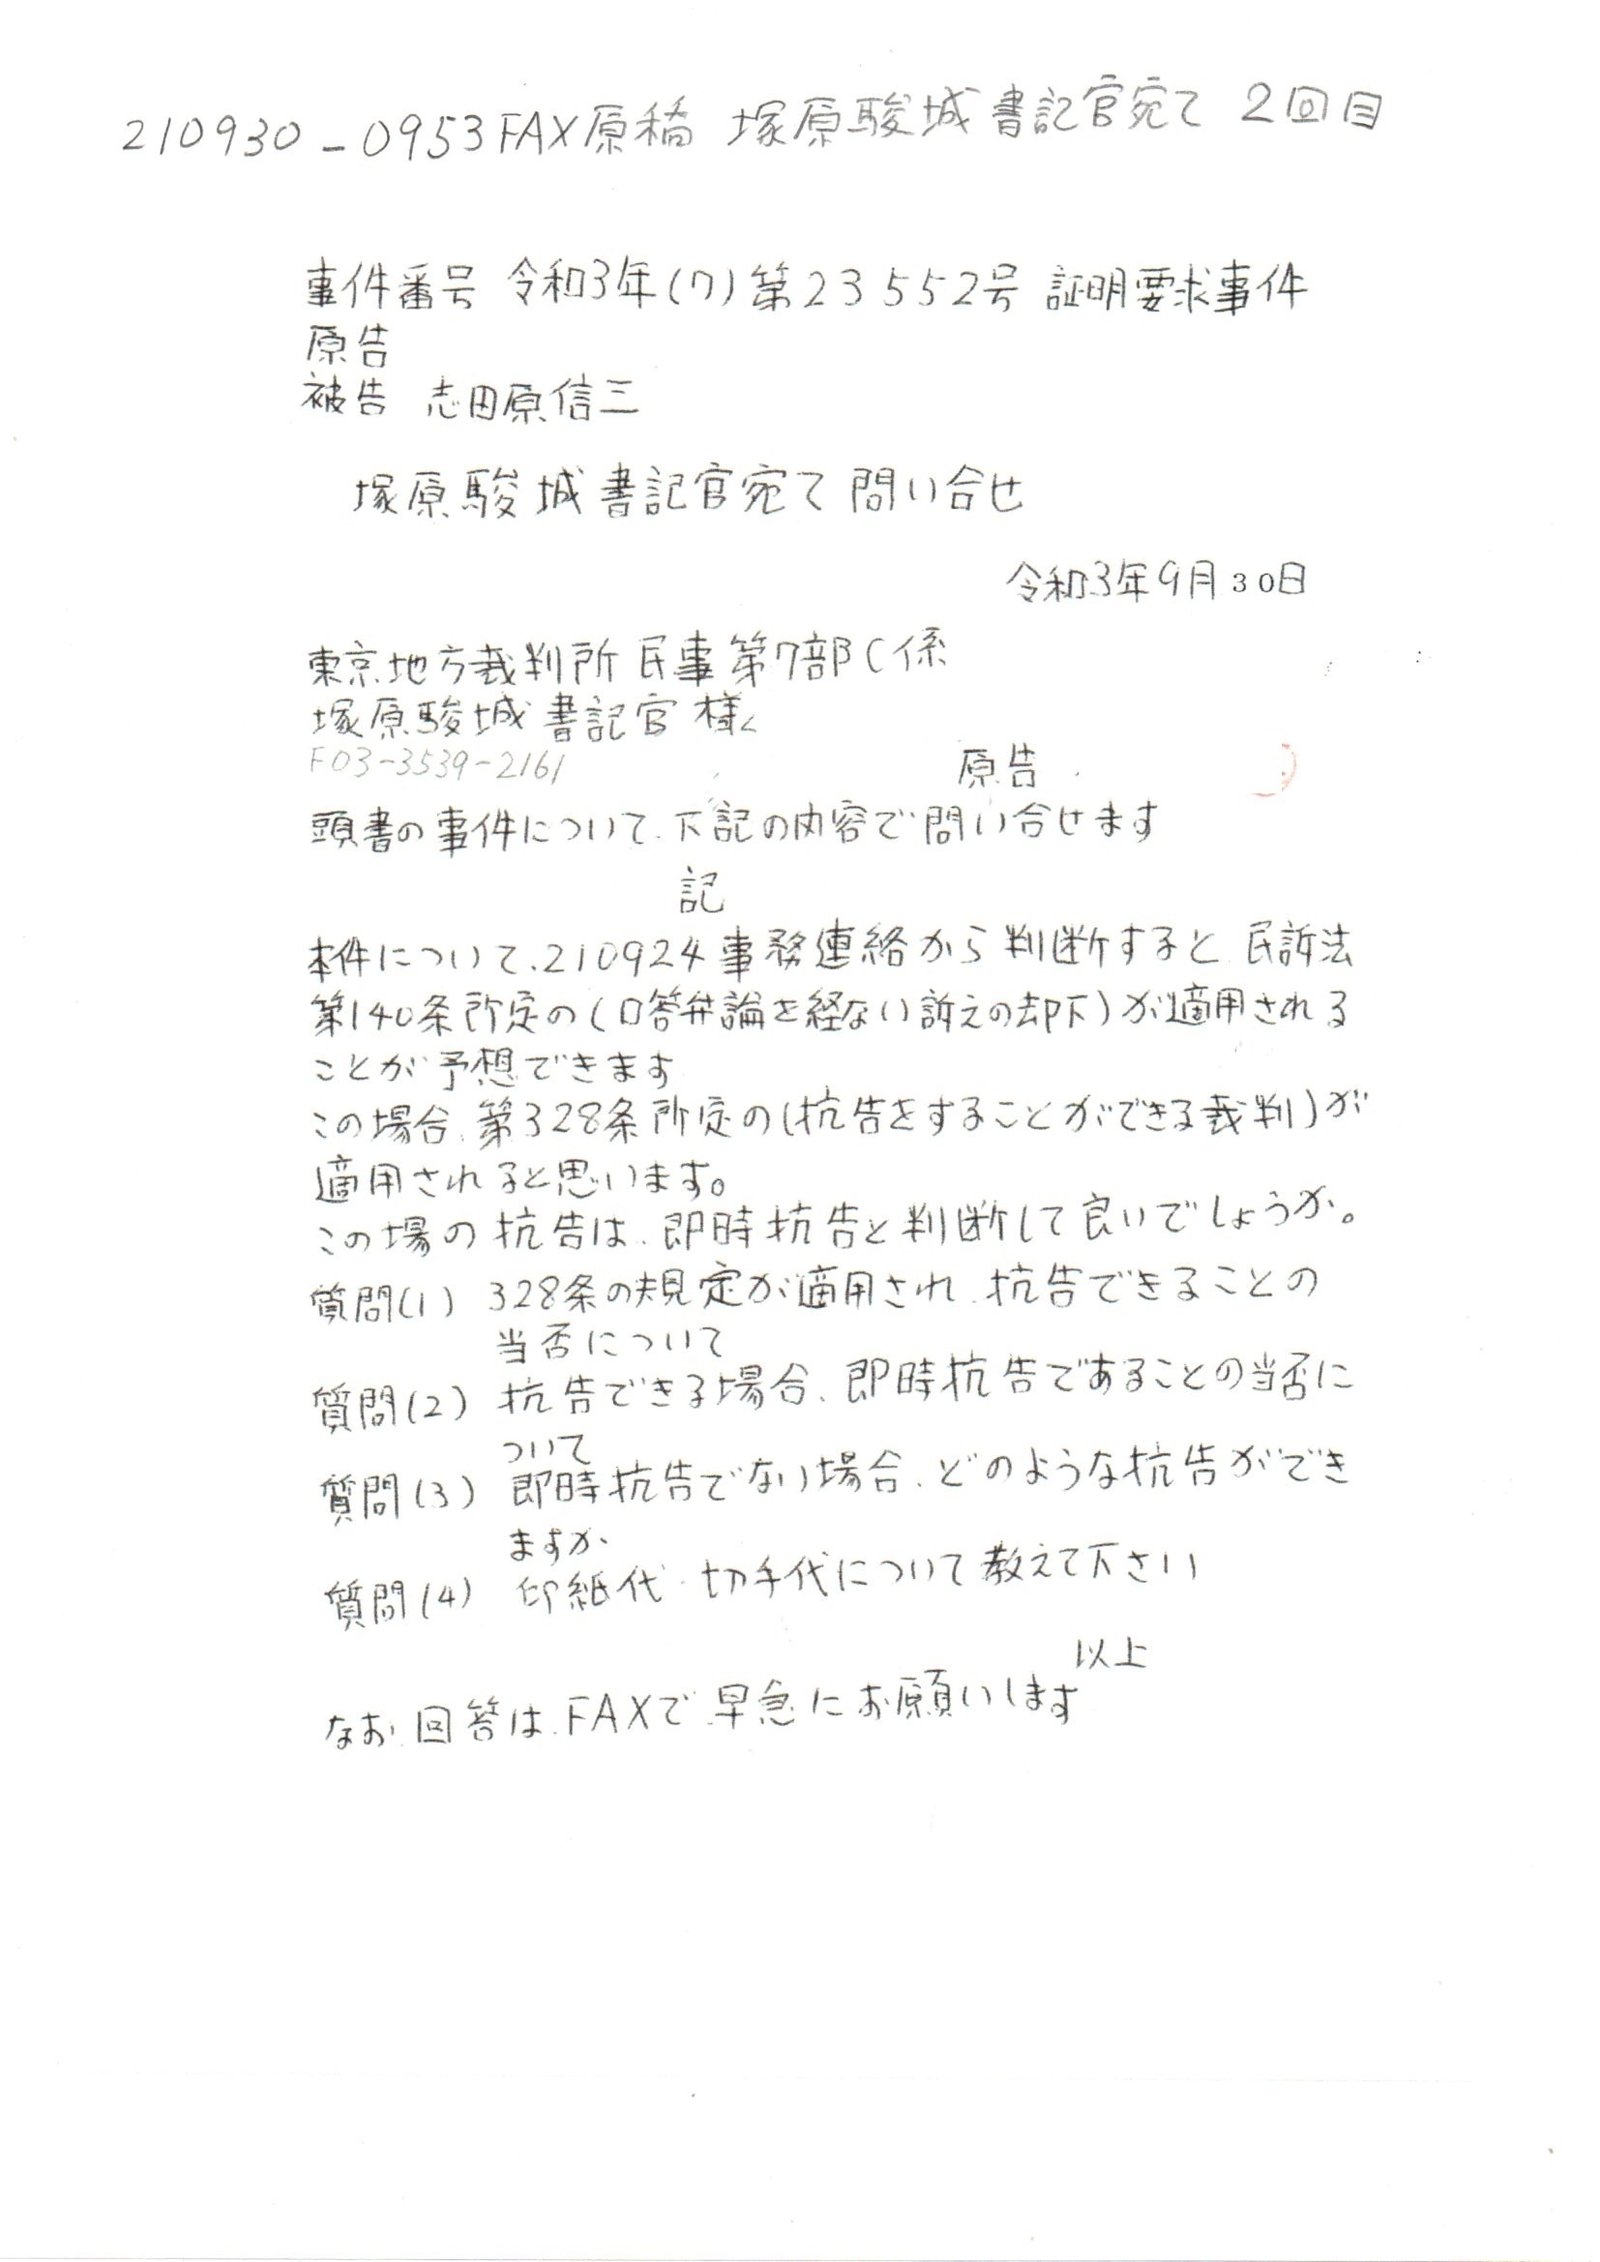 210930_0953FAX原稿 塚原駿城書記官宛て 2回目
事件番号 令和3年(ワ)第23552号 証明要求事件
原告
被告 志田原信三
塚原駿城書記官宛て問い合せ
令和3年9月30日
東京地方裁判所民事第7部C係
塚原駿城書記官様
F03-3539-2161
原告
頭書の事件について、下記の内容で問い合せます
記
本件について、210924事務連絡から判断すると、民訴法
第140条所定の(口答弁論を経ない訴えの却下)が適用される
ことが予想できます
この場合、第328条所定の(抗告をすることができる裁判)が
適用されると思います。
この場の抗告は、即時抗告と判断して良いでしょうか。
質問(1) 328条の規定が適用され、抗告できることの
当否について
質問(2) 抗告できる場合、即時抗告であることの当否に
ついて
質問(3) 即時抗告でない場合、どのような抗告ができ
ますか
質問(4) 印紙代・切手代について教えて下さい
以上
なお、回答は、FAXで、早急にお願いします